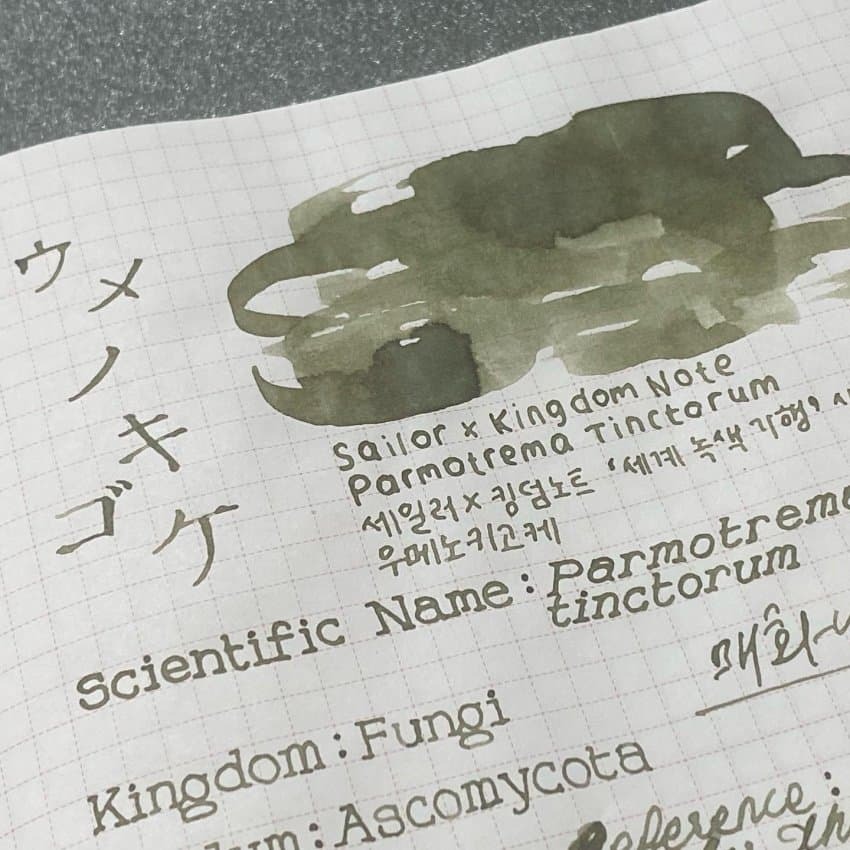 ウメノキゴケ
Sailor x Kingdom Note
Parmotrema Tinctorum
세일러 x 킹덤노트 '세계 녹색 기행'
우메노키고케
Scientific Name: Parmotrema
tinctorum
매화
Kingdom: Fungi
Ascomycota
Reference: